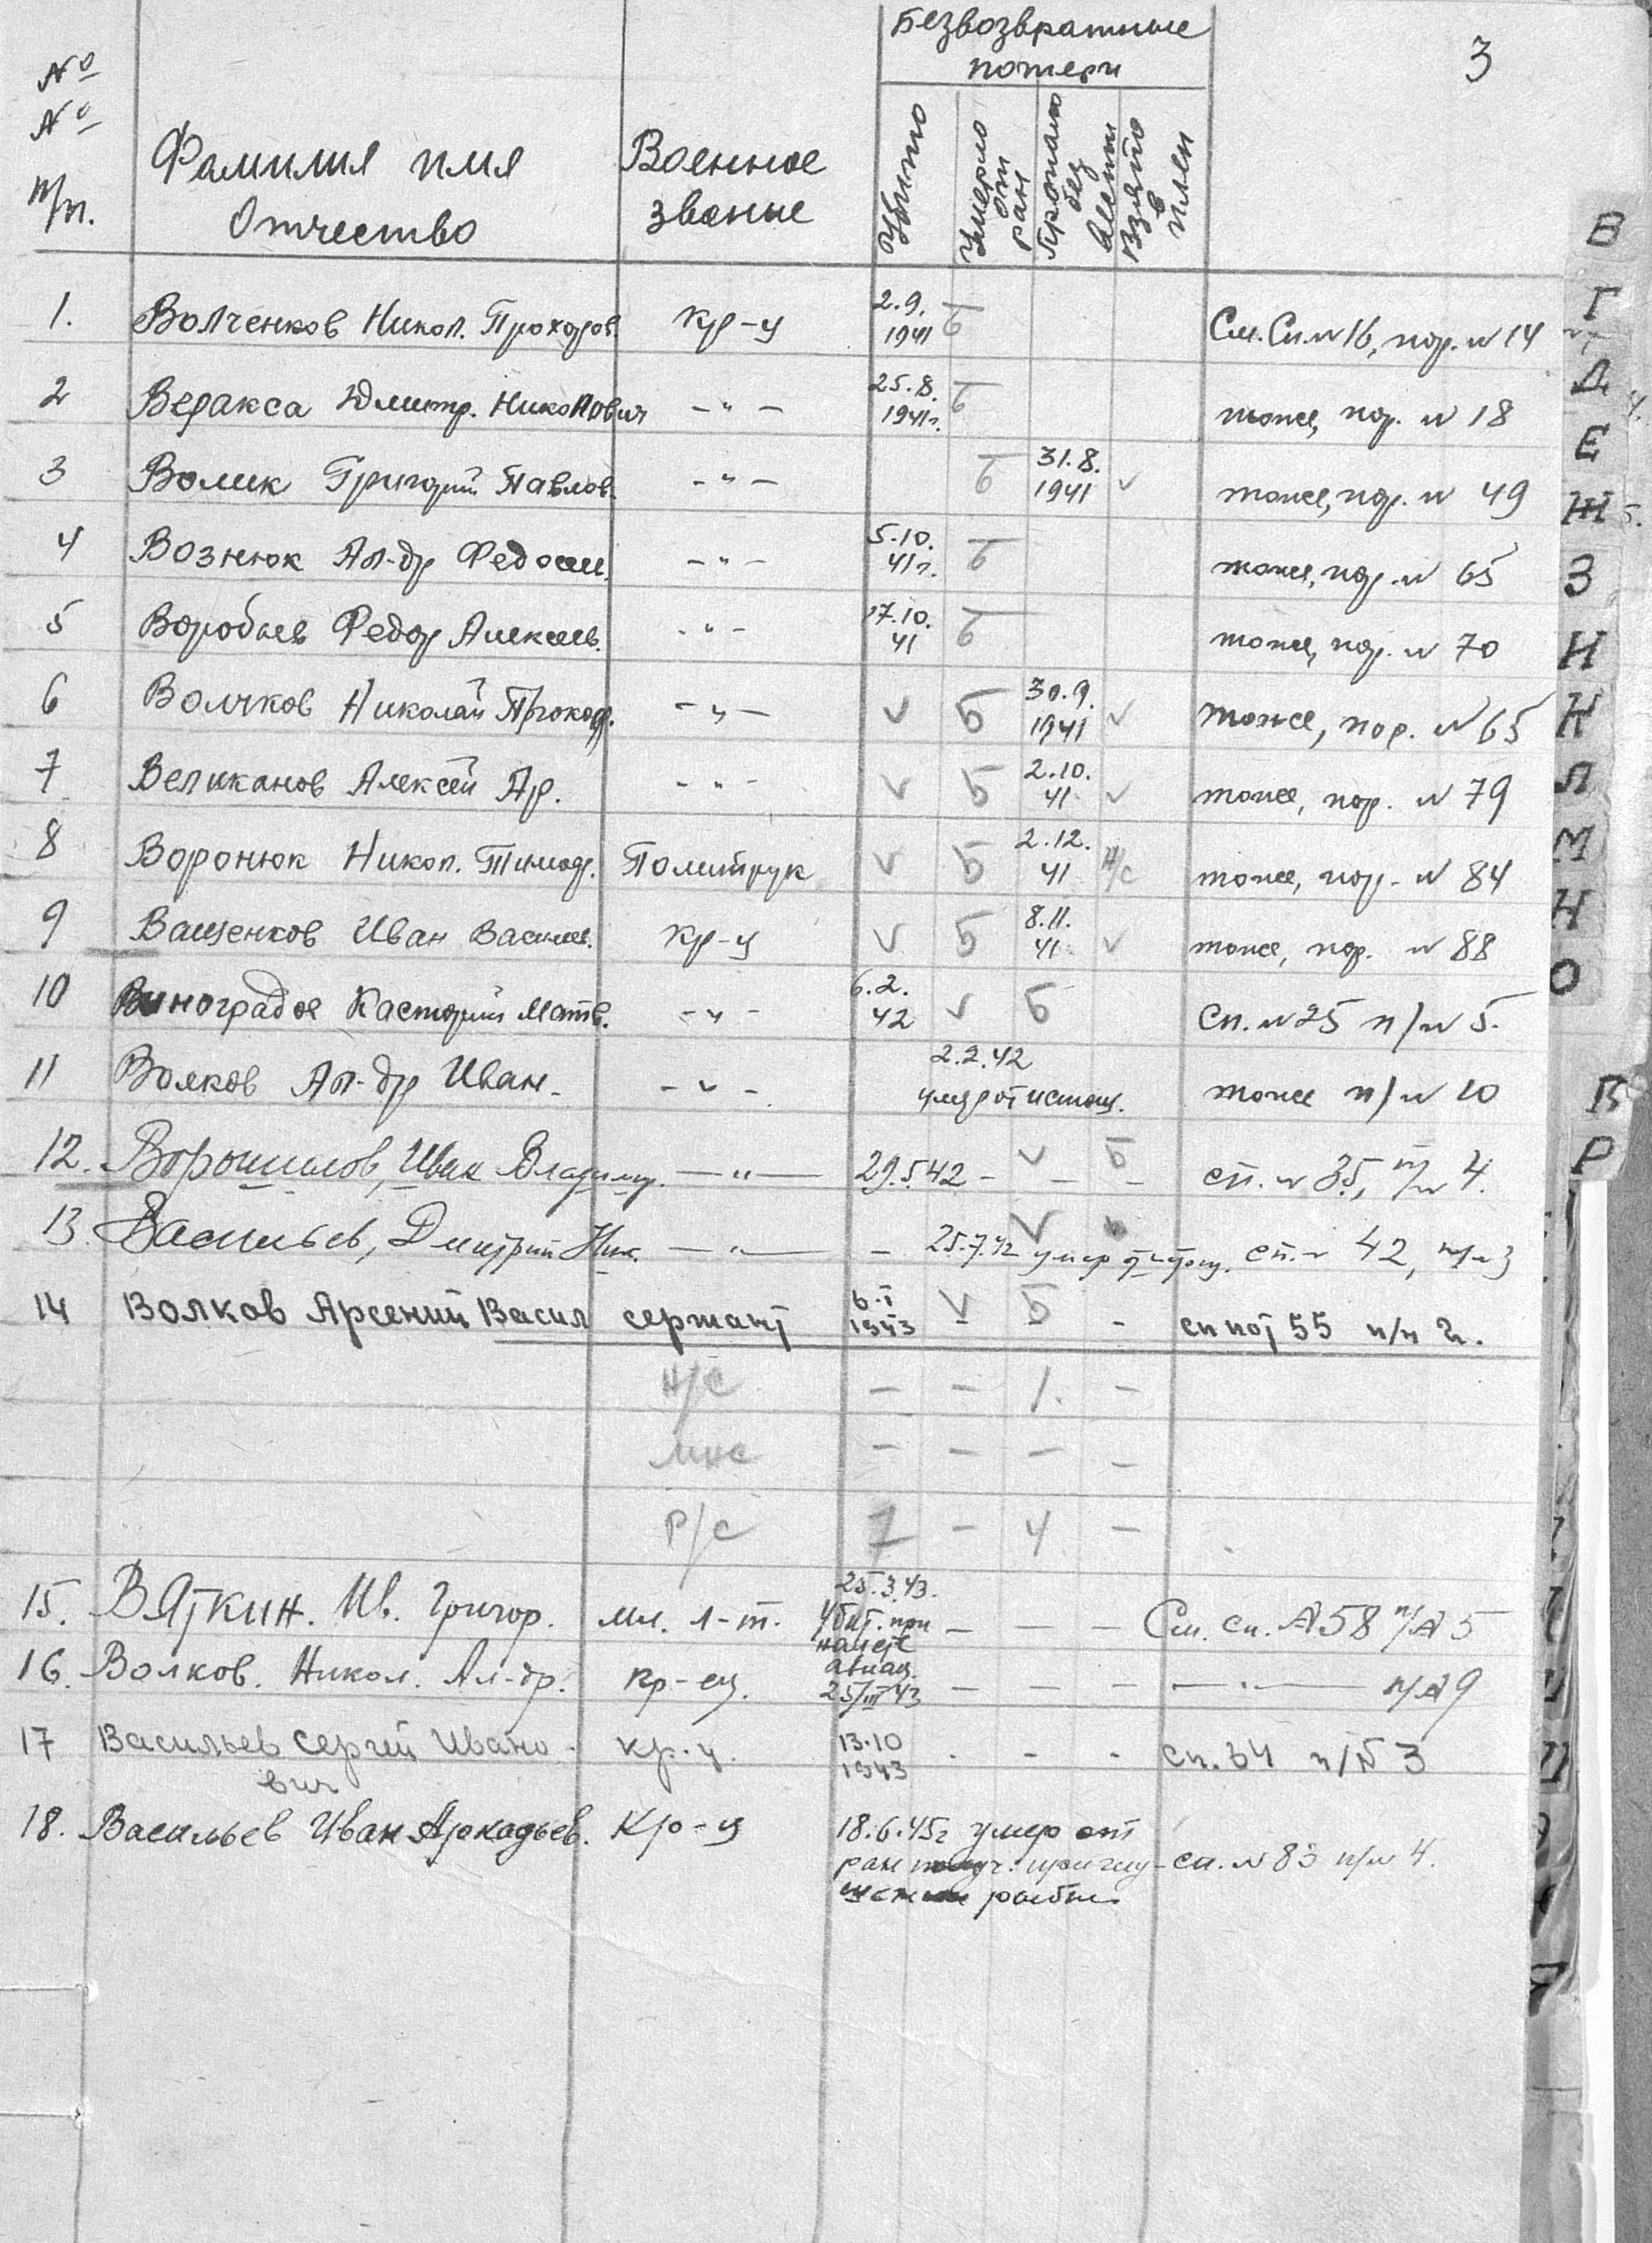 Безвозвратные
потери
3
№
№
п/п.
Фамилия имя
Отчество
Военное
звание
Убито
Умерло от ран
Пропало без вести
Взято в плен
1. Волченков Никол. Прохоров. кр-ц 2.9. 1941 Б См. Сп. № 16, пор. № 14
2 Веракса Дмитр. Николович - " - 25.8. 1941г. Б тоже, пор. № 18
3 Волик Григорий Павлов. - " - Б 31.8. 1941 v тоже, пор. № 49
4 Вознюк Ал-др Федос - " - 5.10. 41г. Б тоже, пор. № 65
5 Воробьев Федор Алексеев. - " - 17.10. 41 Б тоже, пор. № 70
6 Волчков Николай Прокоф. - " - v Б 30.9. 1941 v тоже, пор. № 65
7 Великанов Алексей Ар. - " - v Б 2.10. 41 v тоже, пор. № 79
8 Воронюк Никол. Тимоф. Политрук v Б 2.12. 41 Н/С тоже, пор. № 84
9 Ващенков Иван Васильев. кр-ц v Б 8.11. 41 v тоже, пор. № 88
10 Виноградов Касторий Матв. - " - 6.2. 42 v Б Сп. № 25 п/№ 5.
11 Волков Ал-др Иван. - " - 2.2.42 умер от истощ. тоже п/№ 10
12. Ворошилов, Иван Владимир. — " — 29.5.42 - v - Б - сп. № 35, п/№ 4.
13. Васильев, Дмитрий Ник. — " — - 25.7.42 v умер от сп. № 42, п/№ 3
14 Волков Арсений Васил сержант 6.I 1943 v - Б - - сп пот 55 п/н 2.
Н/С - - 1. -
МНС - - - -
Р/С 7 - 4 -
15. Вяткин. Ив. Григор. мл. л-т. 25.3.43. Убит. при налете авиац. - - - См. сп. № 58 п/№ 5
16. Волков. Никол. Ал-др. кр-ец. 25/III 43 - - - — " — п/№ 9
17 Васильев Сергей Ивано-
вич кр-ц. 13.10 1943 - - - сп. 64 п/№ 3
18. Васильев Иван Аркадьев. Кр-ц 18.6.45г умер от
ран получ. при сп. № 83 п/№ 4.